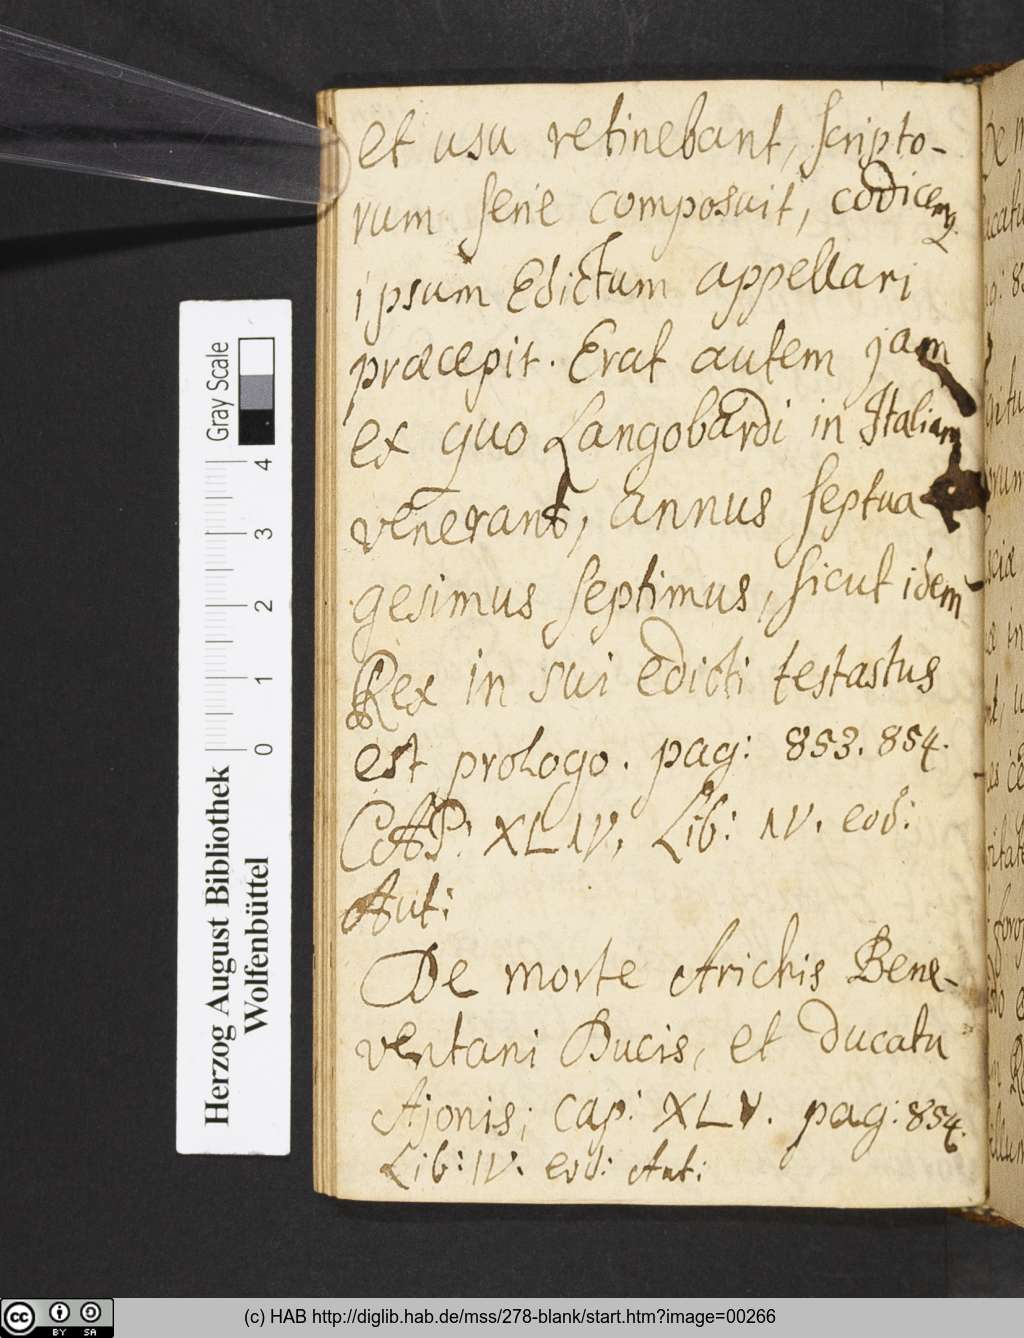 et usu retinebant, scripto-
rum serie composuit, codicemq.
ipsum Edictum appellari
præcepit. Erat autem jam
ex quo Langobardi in Italiam
venerant, annus septua
gesimus septimus, sicut idem
Rex in sui edicti testastus
est prologo. pag: 853. 854.
CAP: XLIV, Lib: IV. eod:
Aut:
De morte Arichis Bene-
ventani Ducis, et ducatu
Ajonis; Cap: XLV. pag: 854.
Lib: IV. eod: Aut:
Gray Scale
4
3
2
1
0
Herzog August Bibliothek
Wolfenbüttel
cc BY SA
(c) HAB http://diglib.hab.de/mss/278-blank/start.htm?image=00266